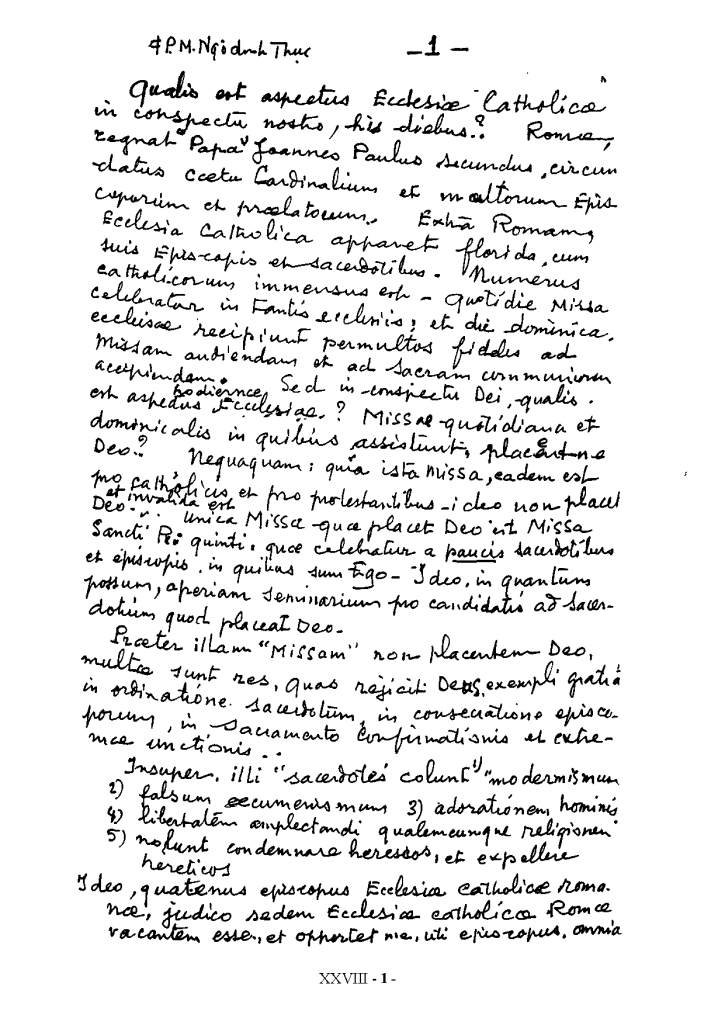 +P.M. Ngôdinh Thục — 1 —
Qualis est aspectus Ecclesiæ "Catholicæ"
in conspectu nostro, his diebus.? Romæ,
regnat "Papa" Joannes Paulus secundus, circum
datus cœtu Cardinalium et multorum Epis
coporum et prælatorum. Extrà Romam,
Ecclesia Catholica apparet florida, cum
suis Episcopis et sacerdotibus. Numerus
catholicorum immensus est - Quotidie Missa
celebratur in tantis ecclesiis, et die dominica,
ecclesiæ recipiunt permultos fideles ad
Missam audiendam et ad sacram communionem
accipiendam. Sed in conspectu Dei, qualis
est aspectus hodiernæ Ecclesiae.? Missae quotidiana et
dominicalis in quibus assistunt, placent-ne
Deo? Nequaquam: quia ista Missa, eadem est
pro catholicis et pro protestantibus - ideo non placet
Deo. et invalida est. Unica Missa quæ placet Deo est Missa
Sancti Pii quinti, quæ celebratur a paucis sacerdotibus
et episcopis, in quibus sum Ego - Ideo, in quantum
possum, aperiam seminarium pro candidatis ad Sacer-
dotium quod placeat Deo.
Præter illam "Missam" non placentem Deo,
multæ sunt res, quas rejicit Deus, exempli gratiâ
in ordinatione sacerdotum, in consecratione episco-
porum, in sacramento confirmationis et extre-
mæ unctionis..
Insuper, illi "sacerdotes colunt" "modernismum
2) falsum œcumenismum 3) adorationem hominis
4) libertatem amplectandi qualemcunque religionem
5) nolunt condemnare heressos, et expellere
hereticos
Ideo, quatenus episcopus Ecclesiæ catholicæ roma-
næ, judico sedem Ecclesiæ catholicæ Romæ
vacantem esse, et opportet me, uti episcopus, omnia
XXVIII - 1 -